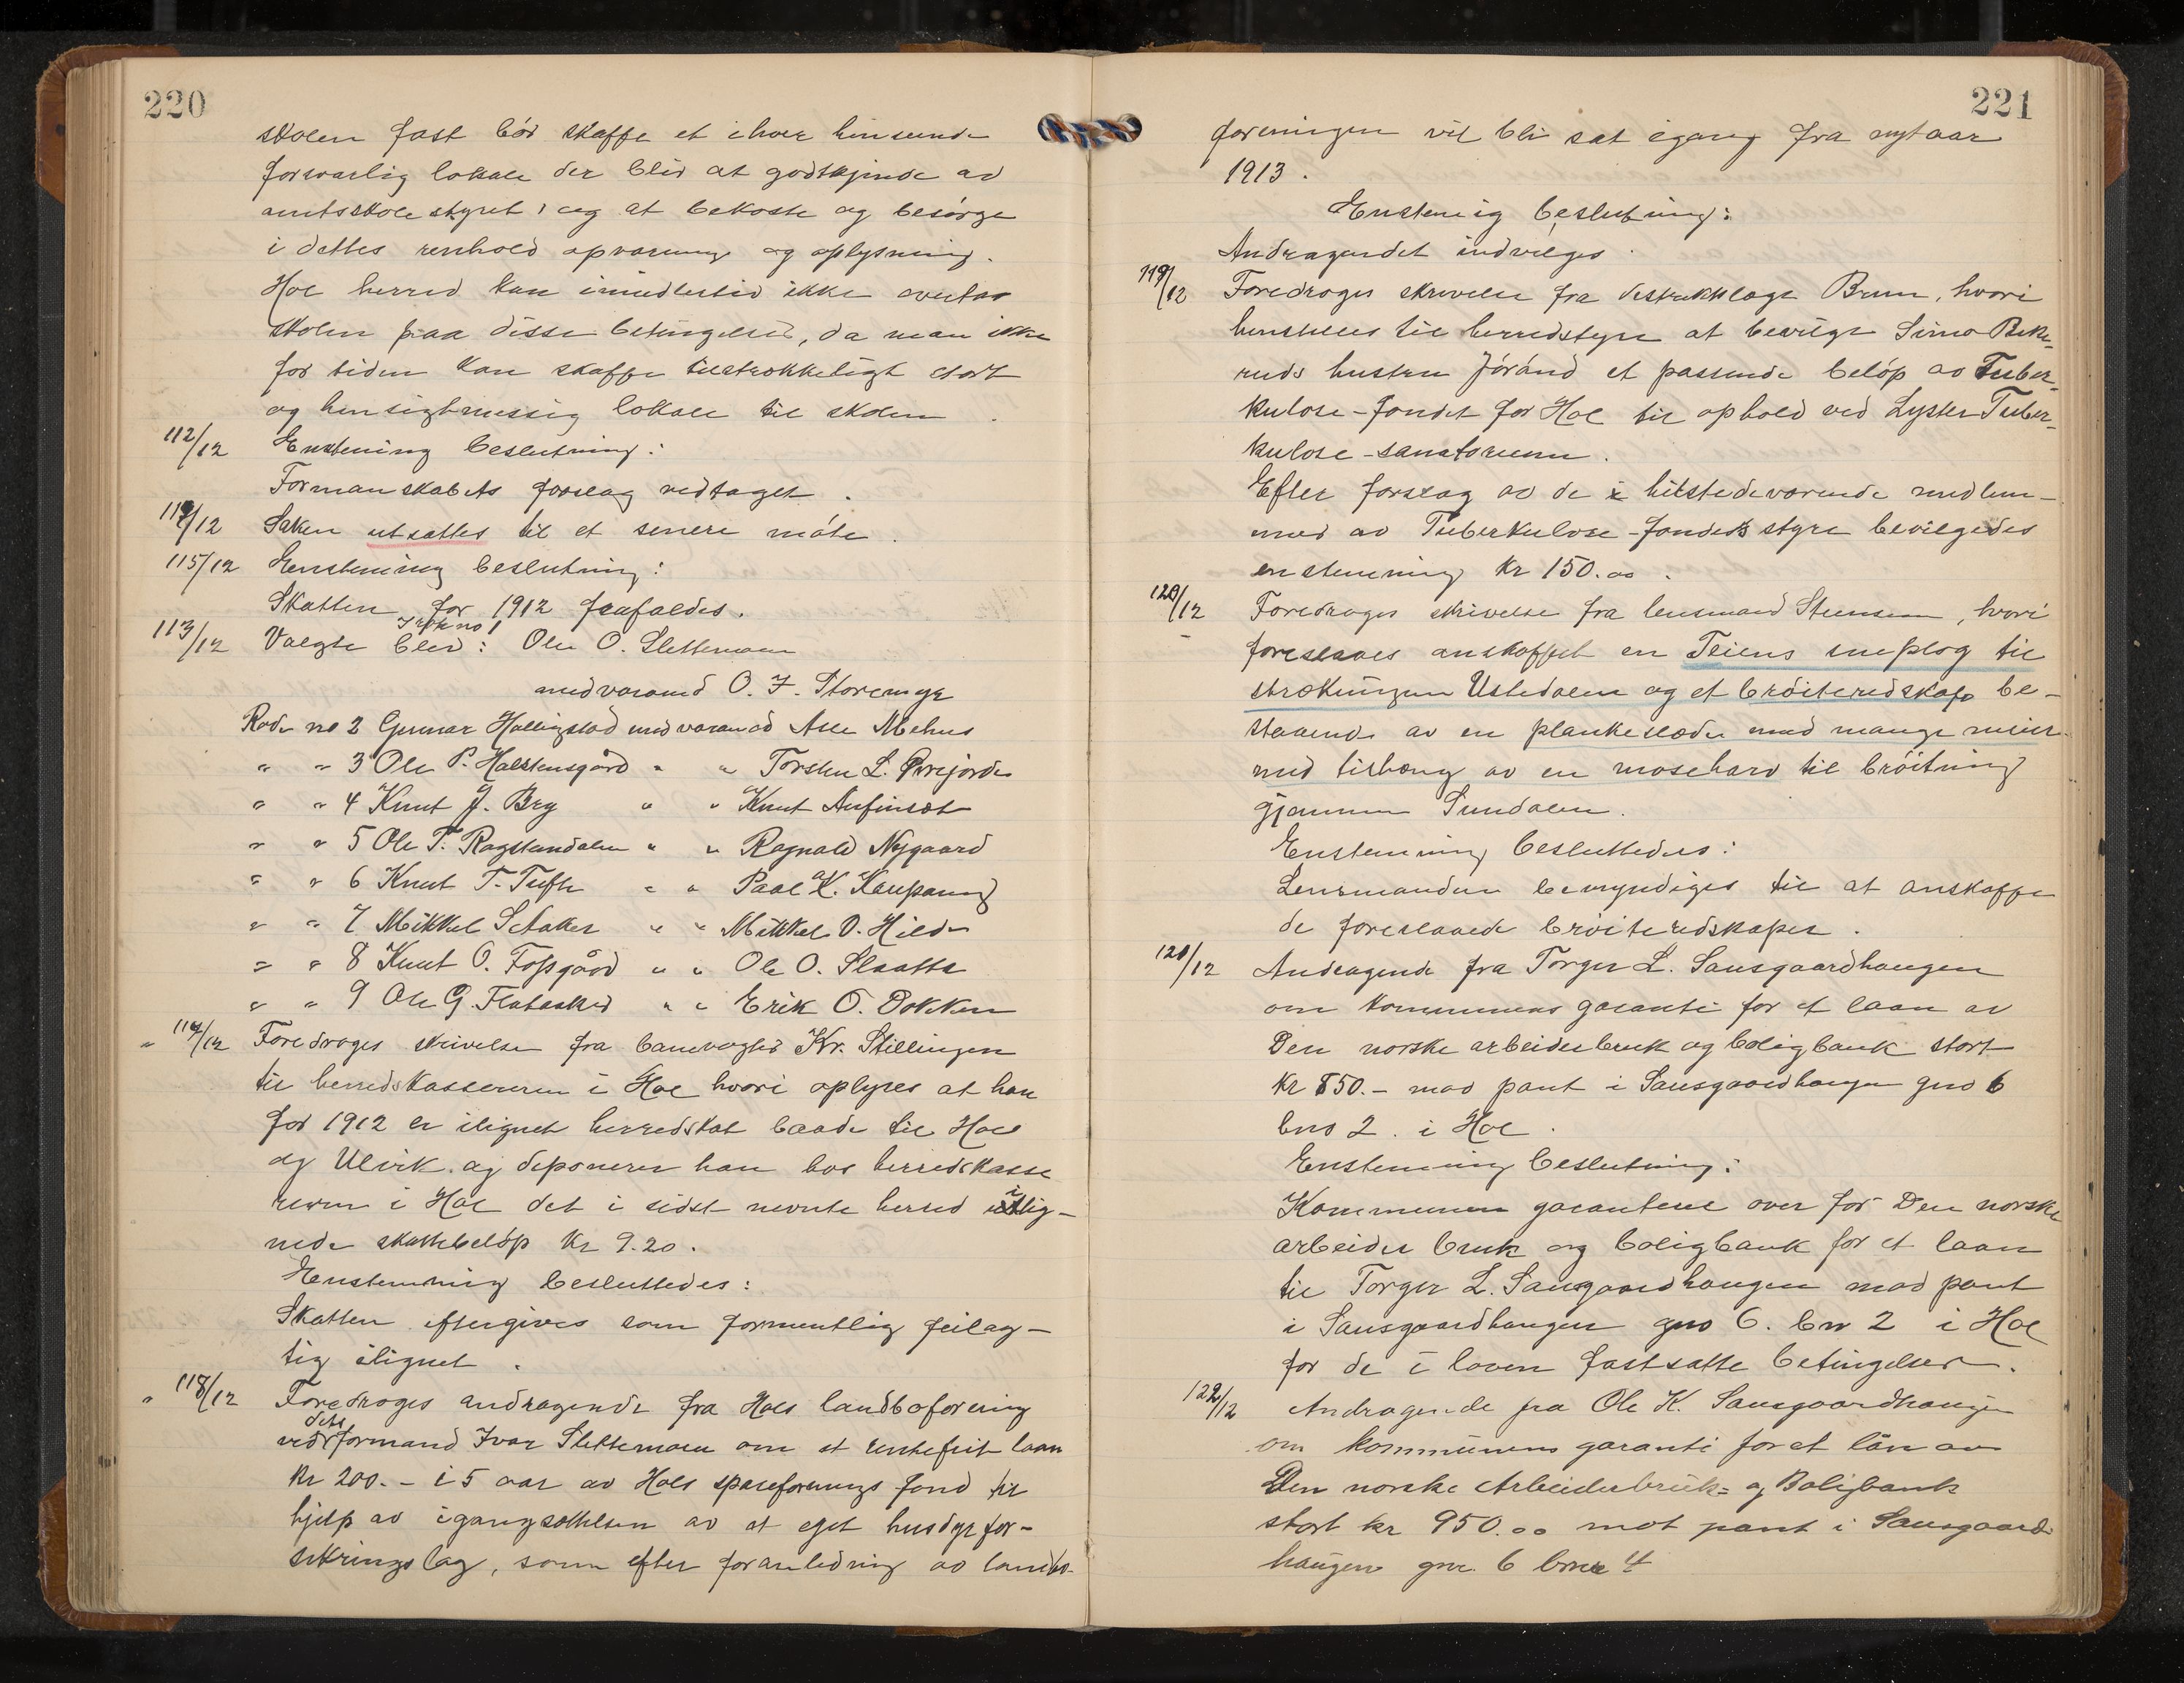 220
skolen fast bør skaffe et i hver henseende
forsvarlig lokale der blir at godkjende av
amtsskolestyret, og at bekoste og besørge
i dettes renhold opvarmning og oplysning.
Hol herred kan imidlertid ikke overta
skolen paa disse betingelser, da man ikke
for tiden kan skaffe tilstrækkeligt stort
og hensigtmessig lokale til skolen.
112/12 Enstemmig beslutning:
Formanskabets forslag vedtaget.
114/12 Saken utsattes til et senere møte.
115/12 Enstemmig beslutning:
Skatten for 1912 frafaldes.
113/12 Valgte blev: Ole O. Slettemoen
med varamd O. J. Storemyr
Rode no 2 Gunnar Hallingstad med varamd Asle Mehus
" " 3 Ole P. Halstensgård " " Torsten L.
" " 4 Knut J. Bry " " Knut Aufinset
" " 5 Ole T. Ragstendalen " " Ragnald Nygaard
" " 6 Knut T. Tufte " " Paal K. Kaupang
" " 7 Mikkel S. Aaker " " Mikkel O. Hilde
" " 8 Knut O. Fossgård " " Ole O. Slaatta
" " 9 Ole G. Flataaker " " Erik O. Bakken
" 117/12 Foredroges skrivelse fra banevogter Kr. Stillingen
til herredskassereren i Hol hvori oplyses at han
for 1912 er ilignet herredskat baade til Hol
og Ulvik. og deponerer han hos herredskasse
reren i Hol det i sidst nevnte herred ilig-
nede skattebeløp kr 9.20.
Enstemmig besluttedes:
Skatten eftergives som formentlig feilag-
tig ilignet.
" 118/12 Foredroges andragende fra Hols landboforening
ved dets formand Ivar Slettemoen om et rentefrit laan
kr 200.- i 5 aar av Hols spareforenings fond til
hjelp av igangsættelsen av et eget husdyrfor-
sikringslag, som efter foranledning av landbo-
221
foreningen vil bli sat igang fra nytaar
1913.
Enstemig beslutning:
Andragendet indvilges.
119/12 Foredroges skrivelse fra distriktslæge Brun, hvori
henstilles til herredstyre at bevilge Simo Bek-
ruds hustru Jøránd et passende beløp av Tuber-
kulose-fondet for Hol til ophold ved Lyster Tuber-
kulose-sanatorium.
Efter forslag av de tilstedeværende medlem-
mer av Tuberkulose-fondets styre bevilgedes
enstemmig kr 150.00.
120/12 Foredroges skrivelse fra lensmand Stensen, hvori
foreslaaes anskaffet en Teiens sneplog til
strækningen Ustedalen og et brøiteredskap be-
staaende av en plankeslæde med mange meier
med tilhæng av en moseharv til brøitning
gjennem Sundalen.
Enstemmig besluttedes:
Lensmanden bemyndiges til at anskaffe
de foreslaaede brøiteredskaper.
121/12 Andragende fra Torger L. Sausgaardhaugen
om kommunens garanti for et laan av
Den norske arbeiderbruk og boligbank stort
kr 850.- mod pant i Sausgaardhaugen gno 6
bno 2. i Hol.
Enstemmig beslutning:
Kommunen garanterer over for Den norske
arbeider bruk og boligbank for et laan
til Torger L. Sausgaardhaugen mod pant
i Sausgaardhaugen gno 6. bn 2 i Hol
for de i loven fastsatte betingelser.
122/12 Andragende fra Ole K. Sausgaardhaugen
om kommunens garanti for et lån av
Den norske Arbeiderbruk- og Boligbank
stort kr 950.00 mot pant i Sausgaard-
haugen gnr. 6 brnr 4